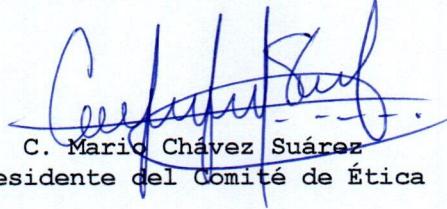 C. Mario Chávez Suárez
esidente del Comité de Ética